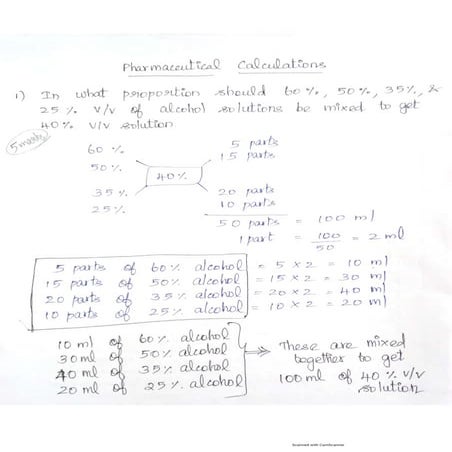 Pharmaceutical Calculations
1) In what proportion should 60%, 50%, 35%, &
25% v/v of alcohol solutions be mixed to get
40% v/v solution
5 marks
60 % 5 parts
50% 15 parts
40%
35% 20 parts
25% 10 parts
50 parts = 100 ml
1 part = 100/50 = 2 ml
5 parts of 60% alcohol = 5 x 2 = 10 ml
15 parts of 50% alcohol = 15 x 2 = 30 ml
20 parts of 35% alcohol = 20 x 2 = 40 ml
10 parts of 25% alcohol = 10 x 2 = 20 ml
10 ml of 60% alcohol
30 ml of 50% alcohol
40 ml of 35% alcohol
20 ml of 25% alcohol
These are mixed
together to get
100 ml of 40% v/v
solution
Scanned with CamScanner